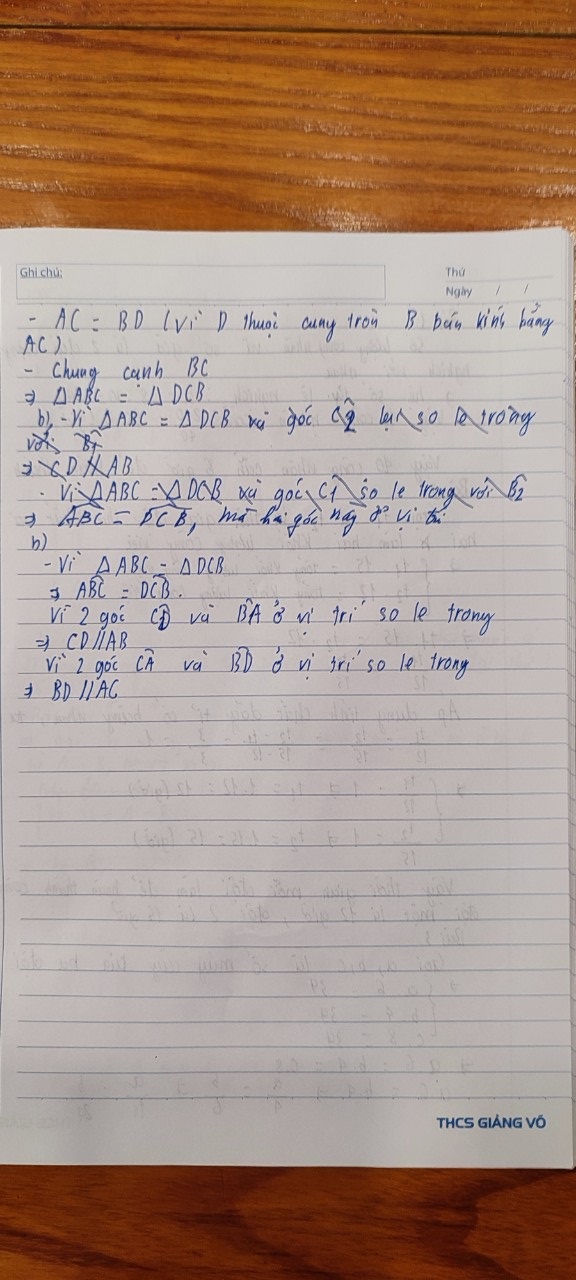 Ghi chú:
Thứ
Ngày / /
- AC = BD (vì D thuộc cung tròn B bán kính bằng
AC)
- Chung cạnh BC
⇒ △ABC = △DCB
b) - Vì △ABC = △DCB và góc C2 so le trong
với B1
⇒ CD // AB
- Vì △ABC = △DCB và góc C1 so le trong với B2
⇒ ABC = DCB, mà hai góc này ở vị trí
b)
- Vì △ABC = △DCB
⇒ ABC = DCB.
Vì 2 góc CD và BA ở vị trí so le trong
⇒ CD // AB
Vì 2 góc CA và BD ở vị trí so le trong
⇒ BD // AC
THCS GIẢNG VÕ